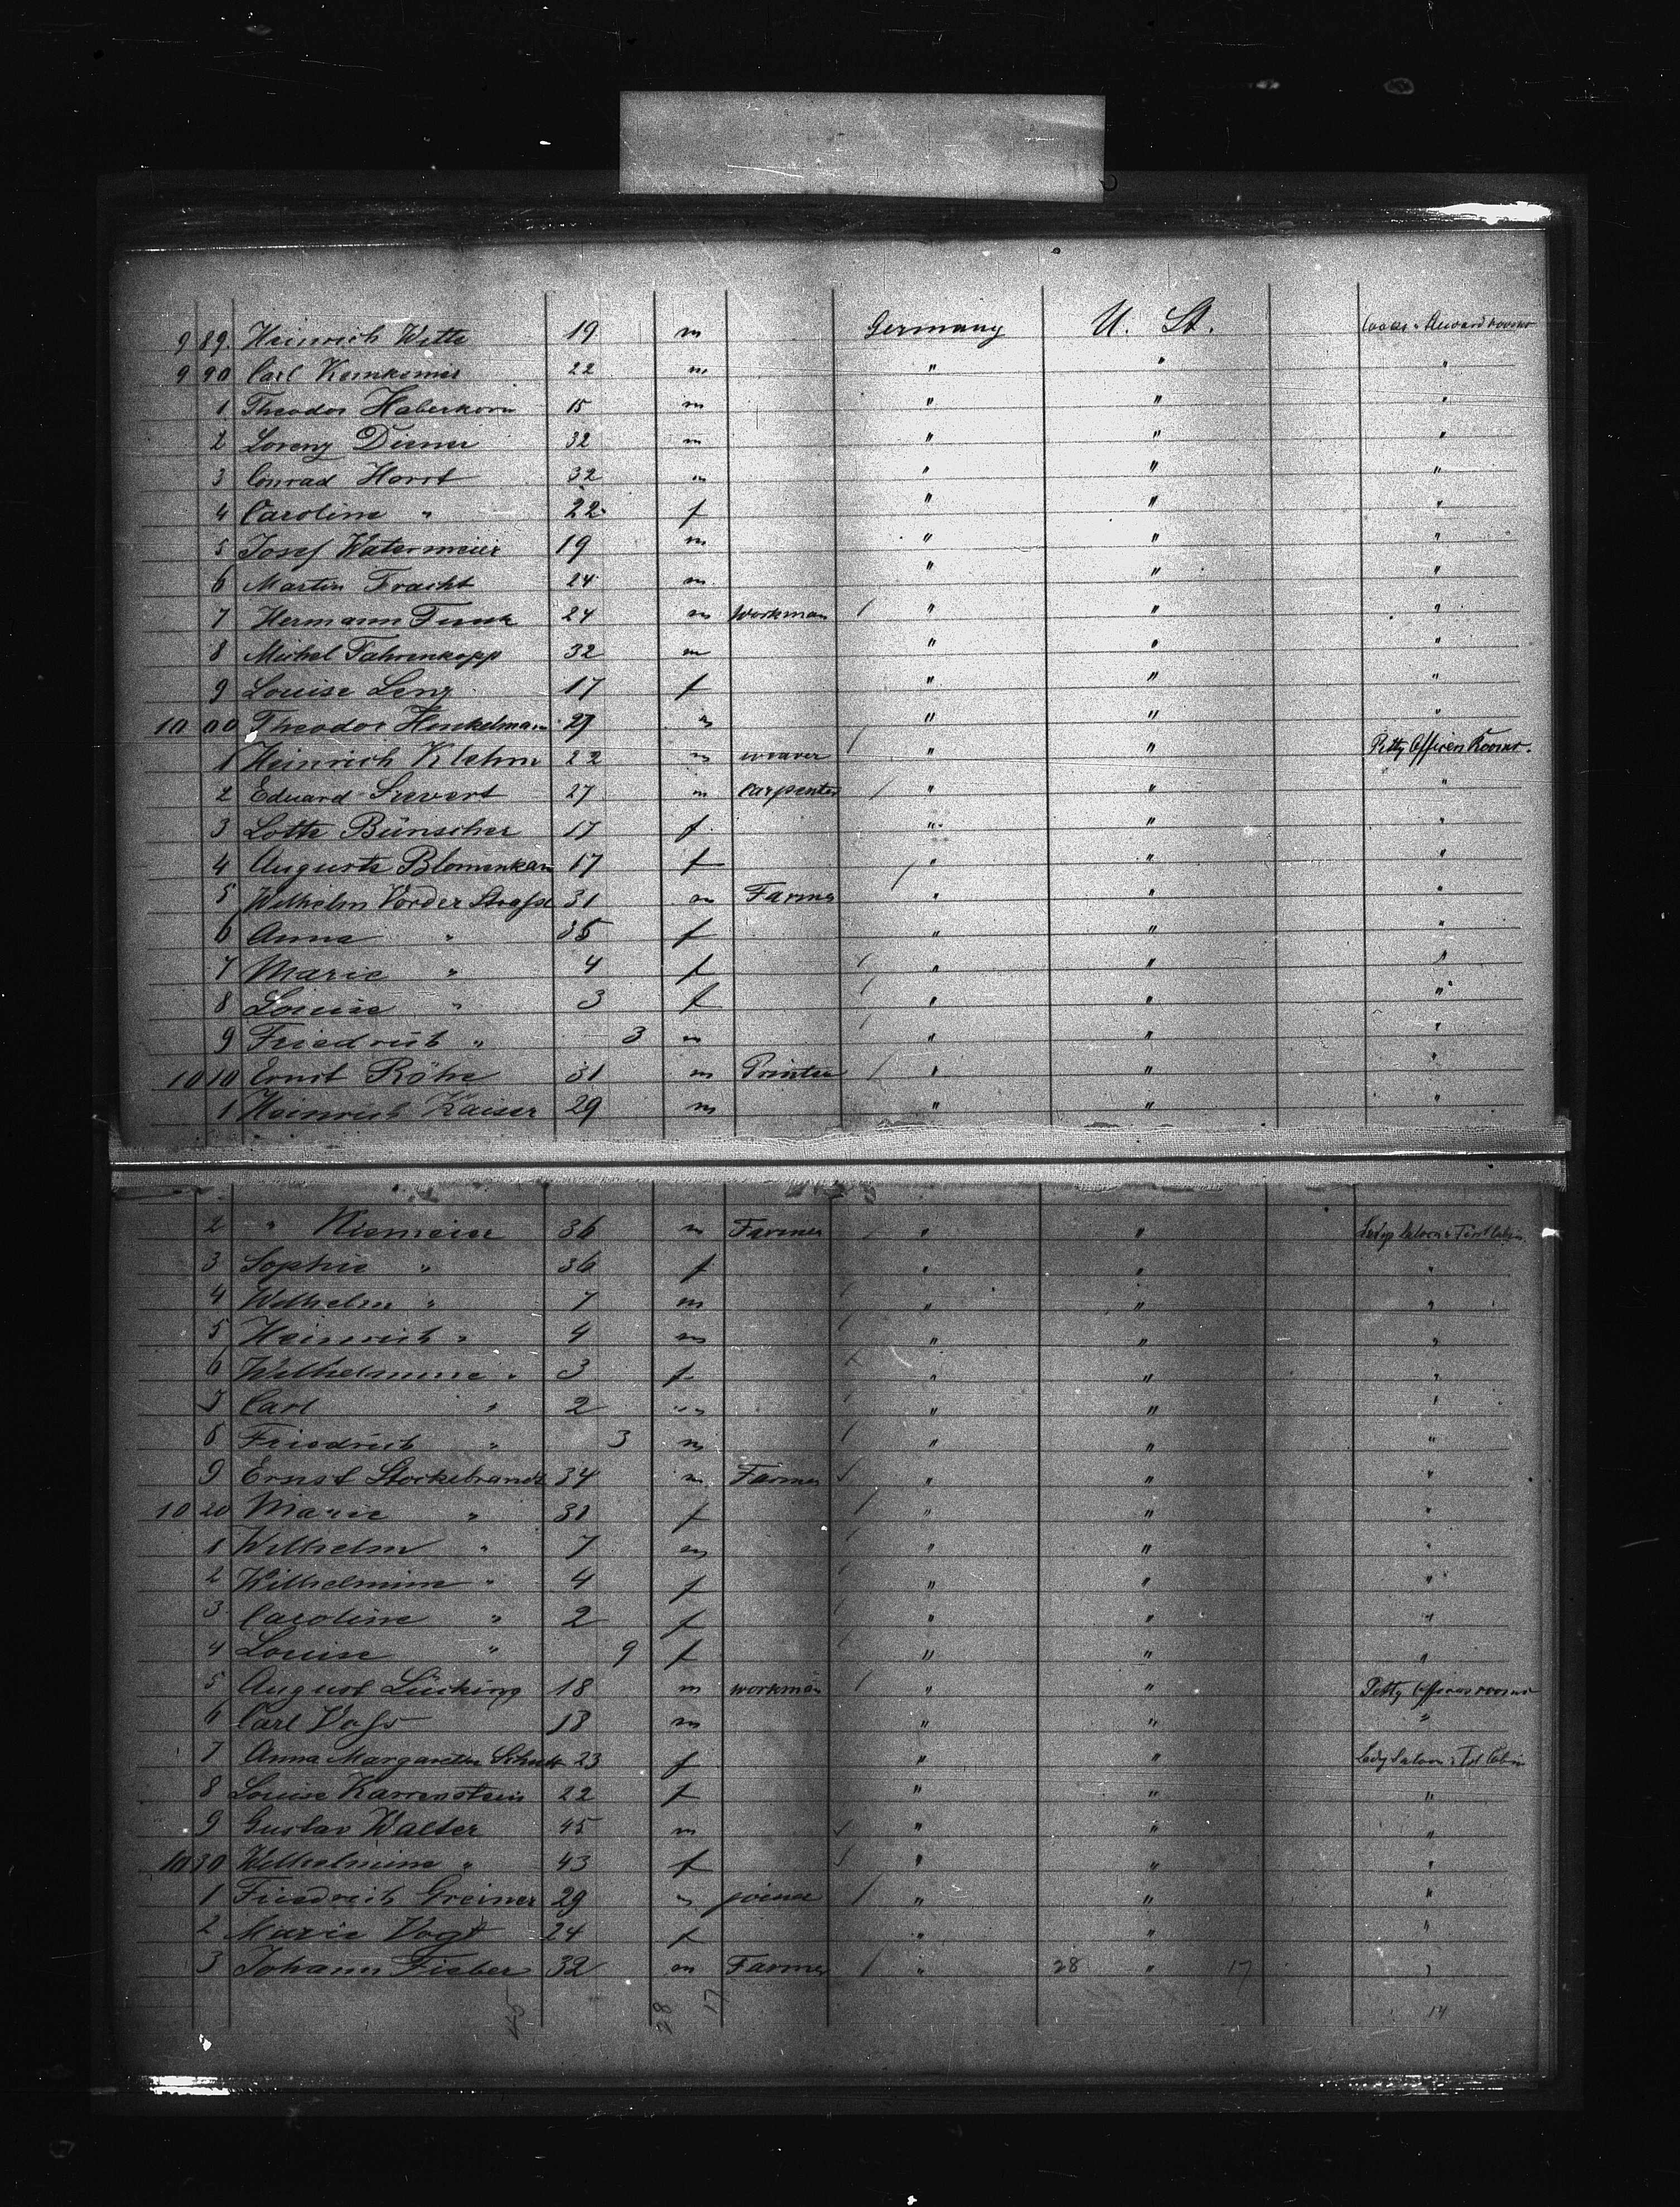 989. Heinrich Witte 19 m Germany U. St.
990 Carl 22 m " " "
1 Theodor Haberkorn 15 m " " "
2 Lorenz Diener 32 m " " "
3 Conrad Horst 32 m " " "
4 Caroline " 22 f " " "
5 Josef Watermeier 19 m " " "
6 Martin Fracht 24 m " " "
7 Hermann Funk 24 m Workman / " " "
8 Michel Fahrenkopp 32 m " " "
9 Louise Lenz 17 f " " "
1000 Theodor Henkelmann 27 m " " "
1 Heinrich Klehm 22 m weaver / " " Petty Officers Rooms.
2 Eduard Sievert 27 m Carpenter / " " "
3 Lotte Bünscher 17 f " " "
4 Auguste Blomenkam 17 f " " "
5 Wilhelm Vorder Strasse 31 m Farmer / " " "
6 Anna " 35 f " " "
7 Marie " 4 f / " " "
8 Louise " 3 f / " " "
9 Friedrich " 3 m / " " "
1010 Ernst Röhr 31 m Printer / " " "
1 Heinrich Kaiser 29 m " " "
2 " Niemeier 36 m Farmer / " " Ladys Saloon & First Cabin
3 Sophie " 36 f " " "
4 Wilhelm " 7 m / " " "
5 Heinrich " 4 m / " " "
6 Wilhelmine " 3 f / " " "
7 Carl " 2 m / " " "
8 Friedrich " 3 m / " " "
9 Ernst Stockebrand 34 m Farmer / " " "
1020 Marie " 31 f / " " "
1 Wilhelm " 7 m / " " "
2 Wilhelmine " 4 f / " " "
3 Caroline " 2 f / " " "
4 Louise " 9 f / " " "
5 August Lücking 18 m workman / " " Petty Officers rooms
6 Carl Voss 18 m " " "
7 Anna Margarethe 23 f " " Lady Saloon & Cabin
8 Louise Karrenstein 22 f " " "
9 Gustav Walter 45 m / " " "
1030 Wilhelmine " 43 f / " " "
1 Friedrich Greiner 29 m joiner / " " "
2 Marie Vogt 24 f " " "
3 Johann Fieber 32 m Farmer / " 28 " 17 "
45 28 17